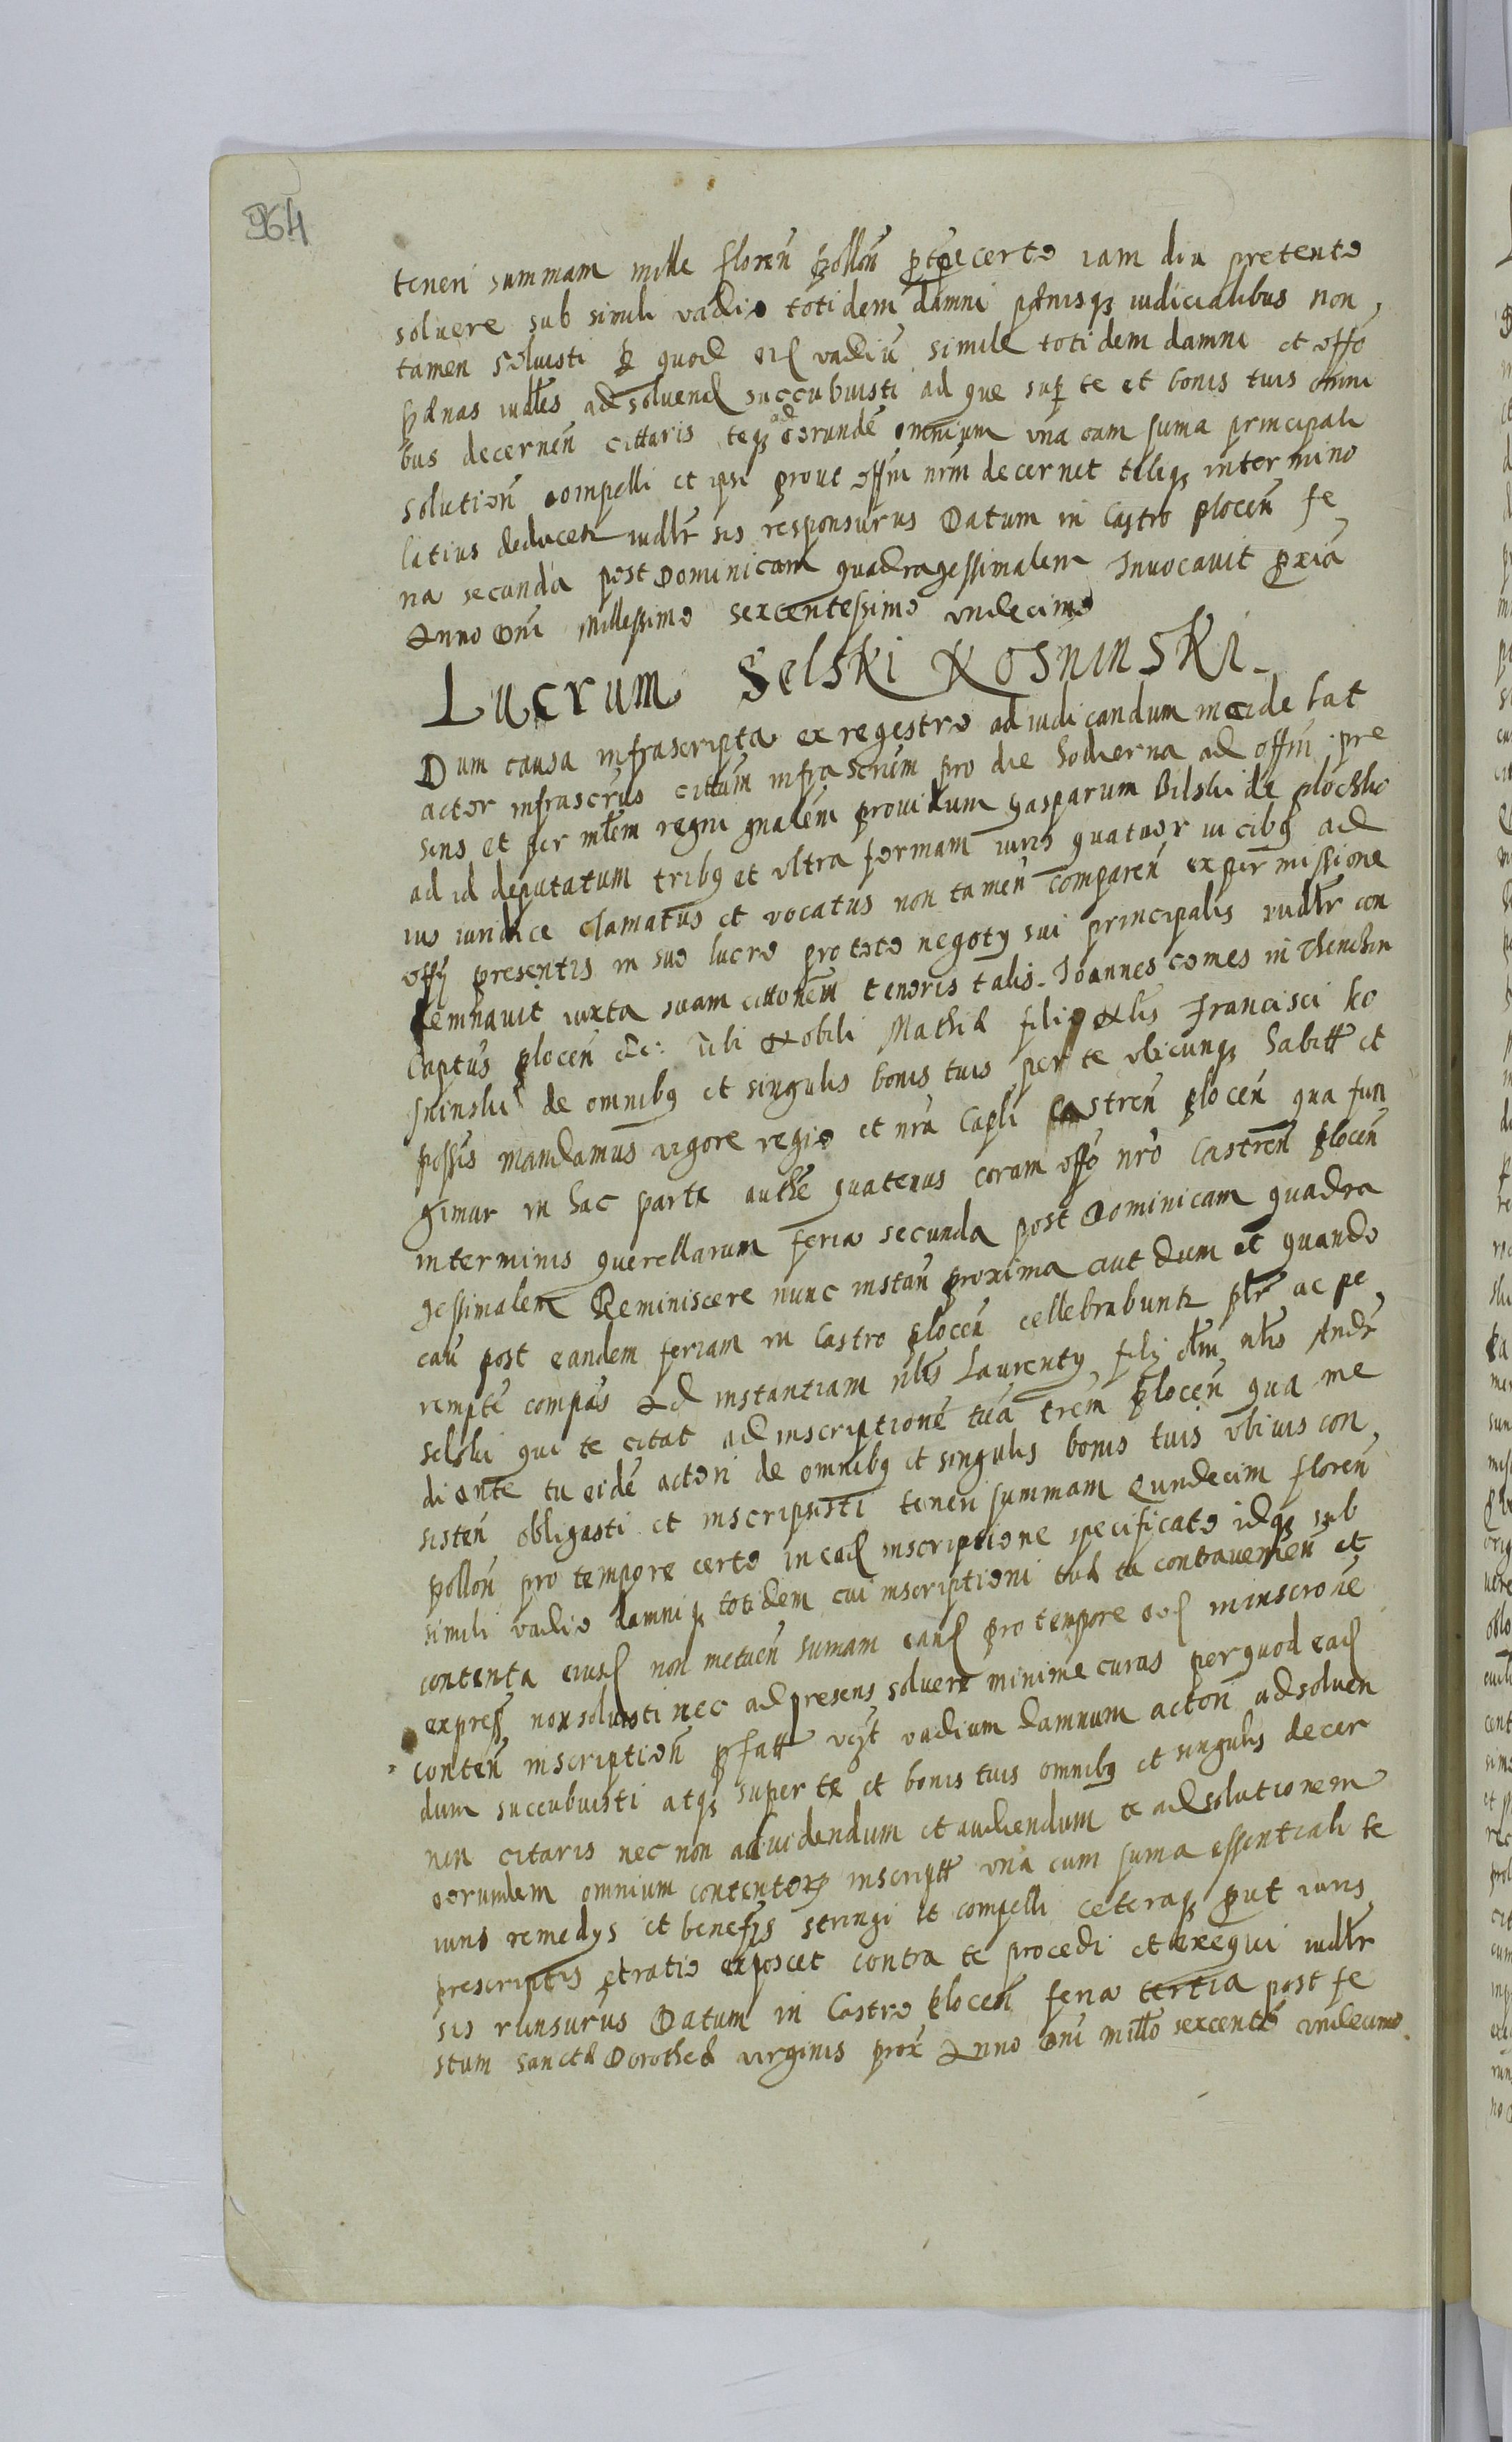 964
teneri summam mille floren̄ pollon̄ p̄ tp̄e certo iam diu pretento
soluere sub simili vadio totidem damni pænisqȝ iudicialibus non
tamen soluisti ꝑ quod vadiū simile totidem damni et offo
pænas iudłes ad soluend succubuisti ad que sup te et bonis tuis omni
bus decernen̄ cittaris teqȝ ad eorundē omnium vna cum suma principali
solution̄ compelli et ipse prout offm nr̄m decernet tibiqȝ in termino
latius deducetr iudłr sis responsurus Datum in Castro plocen̄ fe
ria secunda post Dominicam quadragessimalem Inuocauit pxia
Anno Dni Millessimo sexcentessimo vndecimo
Lucrum Selski Kosninski
Dum causa infrascripta ex regestro ad iudicandum incidebat
actor infrascrūs cittum infrascrūm pro die hodierna ad offm pre
sens et per młem regni gnalem prouidum Gasparum Bilski de plocsko
ad id deputatum tribȝ et vltra formam iuris quatuor vicibȝ ad
ius iuridice clamatus et vocatus non tamen comparen̄ ex permissione
offȳ presentis in suo lucro pro toto negotȳ sui principalis iudłr con
demnauit iuxta suam cittonem tenoris talis. Joannes comes in Thenchin
Captus plocen̄ &c: tibi Nobili Mathiæ filio Nłis Francisci Ko
sninski de omnibȝ et singulis bonis tuis per te vbicunqȝ habitt et
possis mandamus vigore regio et nr̄a Capli castren̄ plocen̄ qua fun
gimur in hac parte authe quatenus coram offo nr̄o Castren̄ plocen̄
in terminis querellarum feria secunda post Dominicam quadra
gessimalem Reminiscere nunc instan̄ proxima aut dum et quando
cau̇ post eandem feriam in Castro plocen̄ cellebrabuntr płr ac pe
rempte compas Ad instantiam nłis Laurentȳ filȳ ołim nłis Andr
Selski qui te citat ad inscriptionē tuā trem plocen̄ qua me
diante tu eidē actori de omnibȝ et singulis bonis tuis vbiuis con
sisten̄ obligasti et inscripsisti teneri summam Qundecim floren̄
pollon̄ pro tempore certo in ead inscriptione specificato idqȝ sub
simili vadio damniqȝ totidem cui inscriptioni tuæ tu contrauenien̄ et
contenta eiusd non metuen̄ sumam eand pro tempore eod in inscrōne
express non soluisti nec ad presens soluere minime curas per quod ead
conten̄ inscription̄ p̄fatt vadium damnum actori ad soluen
dum succubuisti atqȝ super te et bonis tuis omnibȝ et singulis decer
nen citaris nec non ad videndum et audiendum te ad solutionem
eorumdem omnium contentorȝ inscriptt vna cum suma essentiali te
iuris remedȳs et benefȳs stringi et compelli ceteraqȝ put iuris
prescriptis et ratio exposcet contra te procedi et exequi iudłr
sis rūnsurus Datum in Castro plocen̄ feria tertia post fe
stum sanctæ Dorotheæ virginis prox Anno Dni millo sexcente vndecimo.